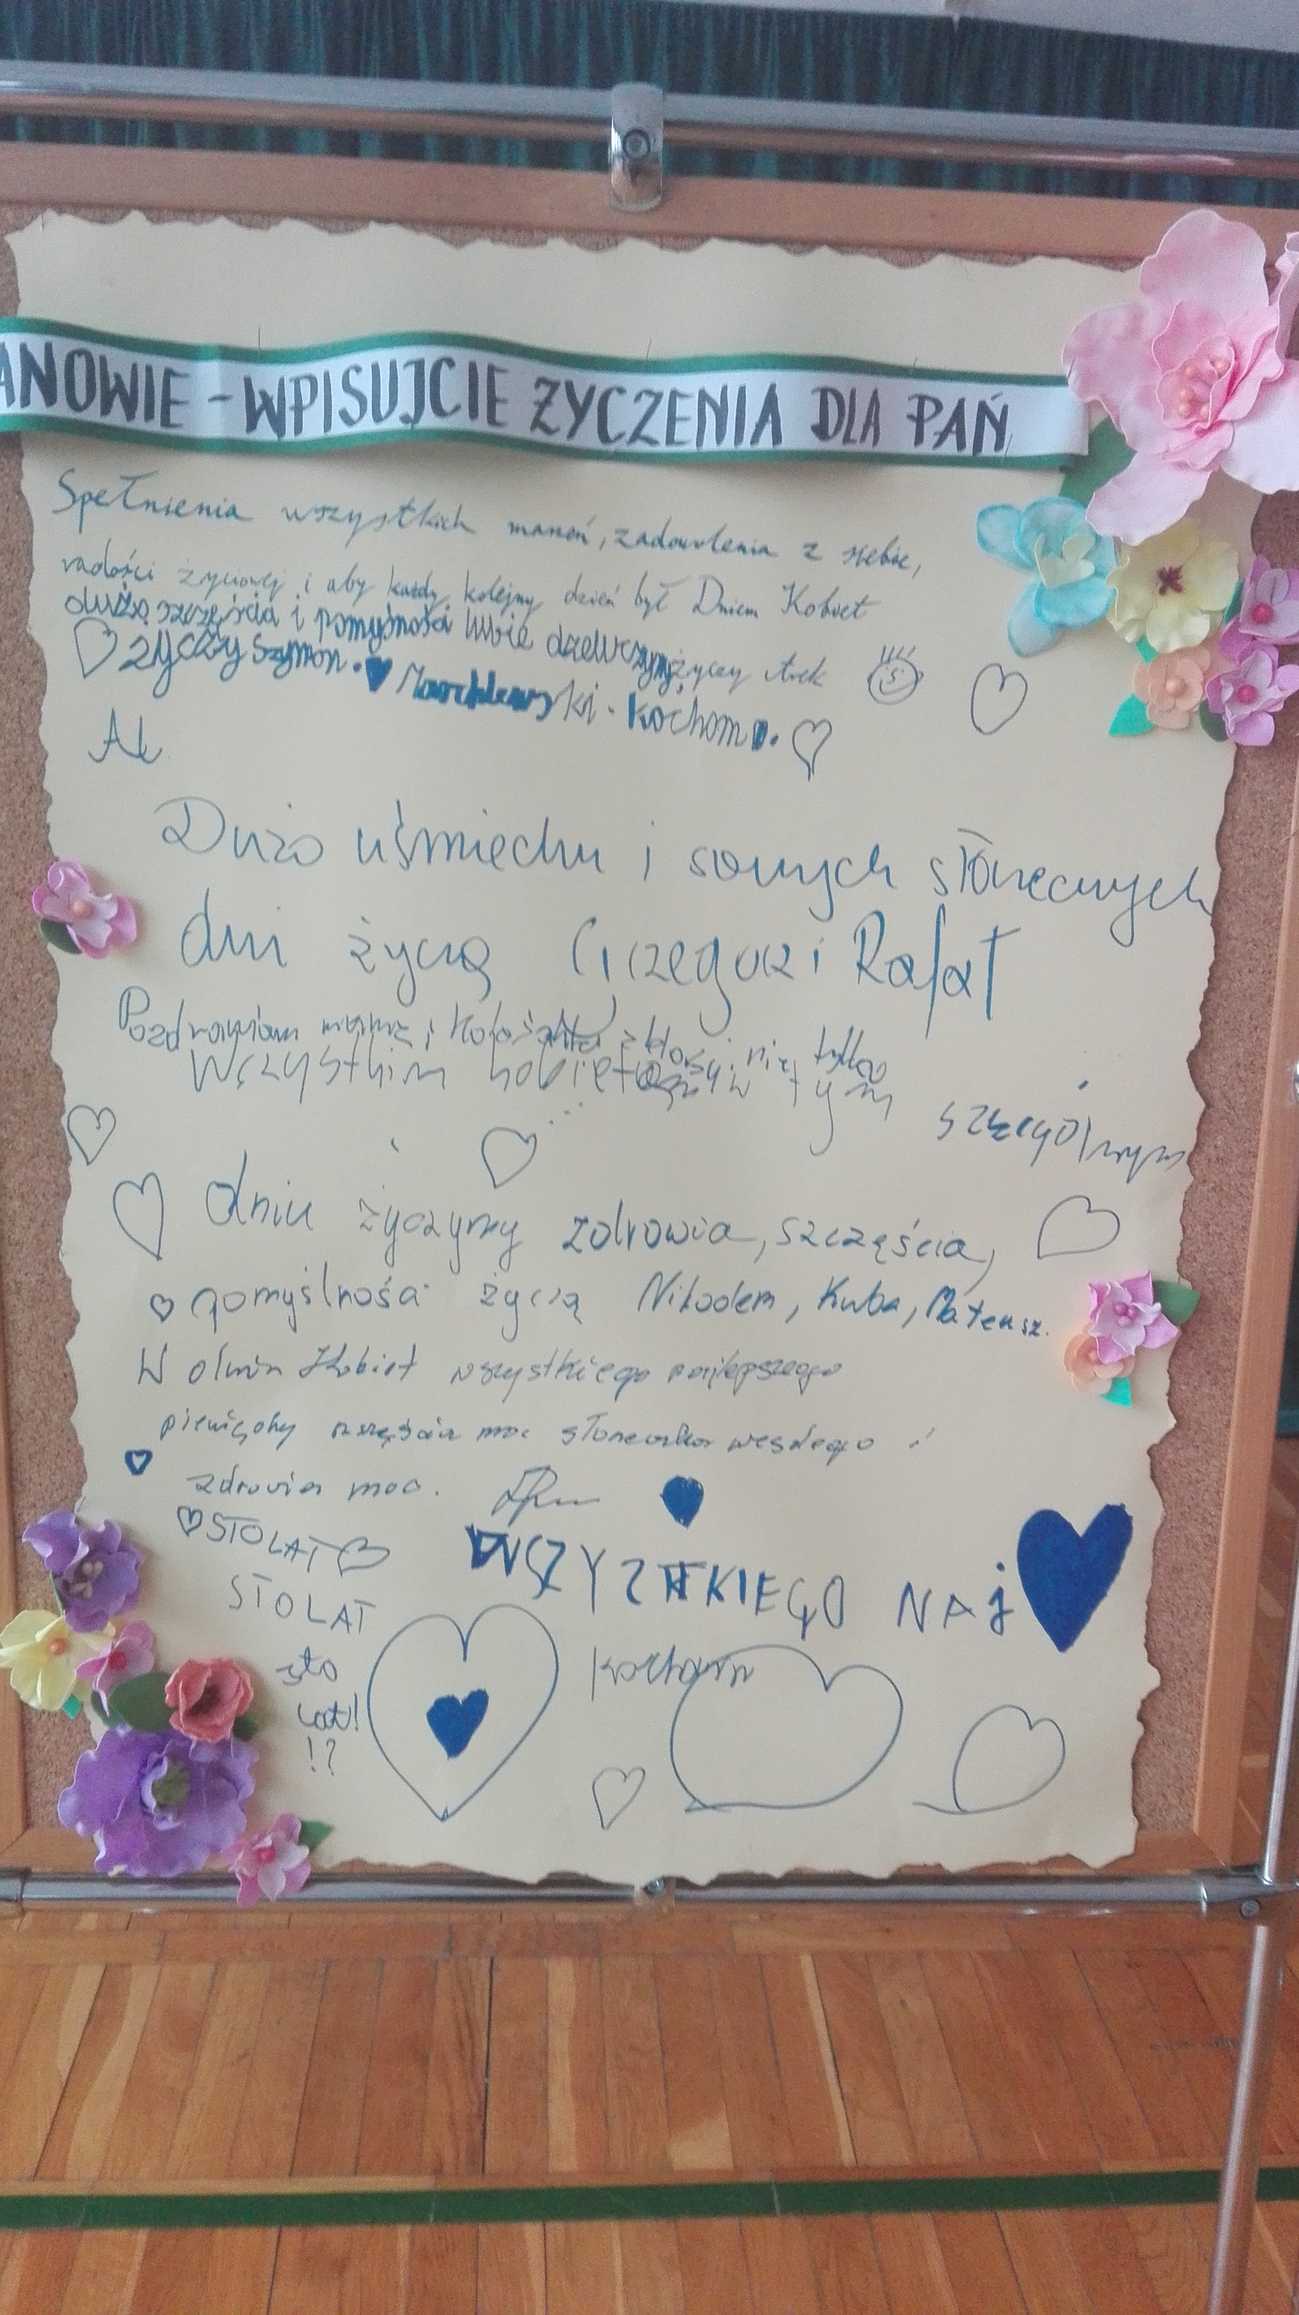 ANOWIE - WPISUJCIE ŻYCZENIA DLA PAŃ
Spełnienia wszystkich marzeń, zadowolenia z siebie,
radości życiowej i aby każdy kolejny dzień był Dniem Kobiet
dużo szczęścia i pomyślności lubie dziewczyny życzy Arek
życzy Szymon. Marchlewski. Kochom.
Dużo uśmiechu i samych słonecznych
dni życzą Grzegorz i Rafał
Pozdrawiam mamę i nie tylko
Wszystkim kobietom w tym szczególnym
dniu życzymy zdrowia, szczęścia,
pomyślności życzą Nikodem, Kuba, Mateusz.
W dniu Kobiet wszystkiego najlepszego
pieniędzy szczęścia moc słoneczka wesołego
zdrowia moc.
STOLAT
WSZYSTKIEGO NAJ
STOLAT
sto
lat!
!?
kocham